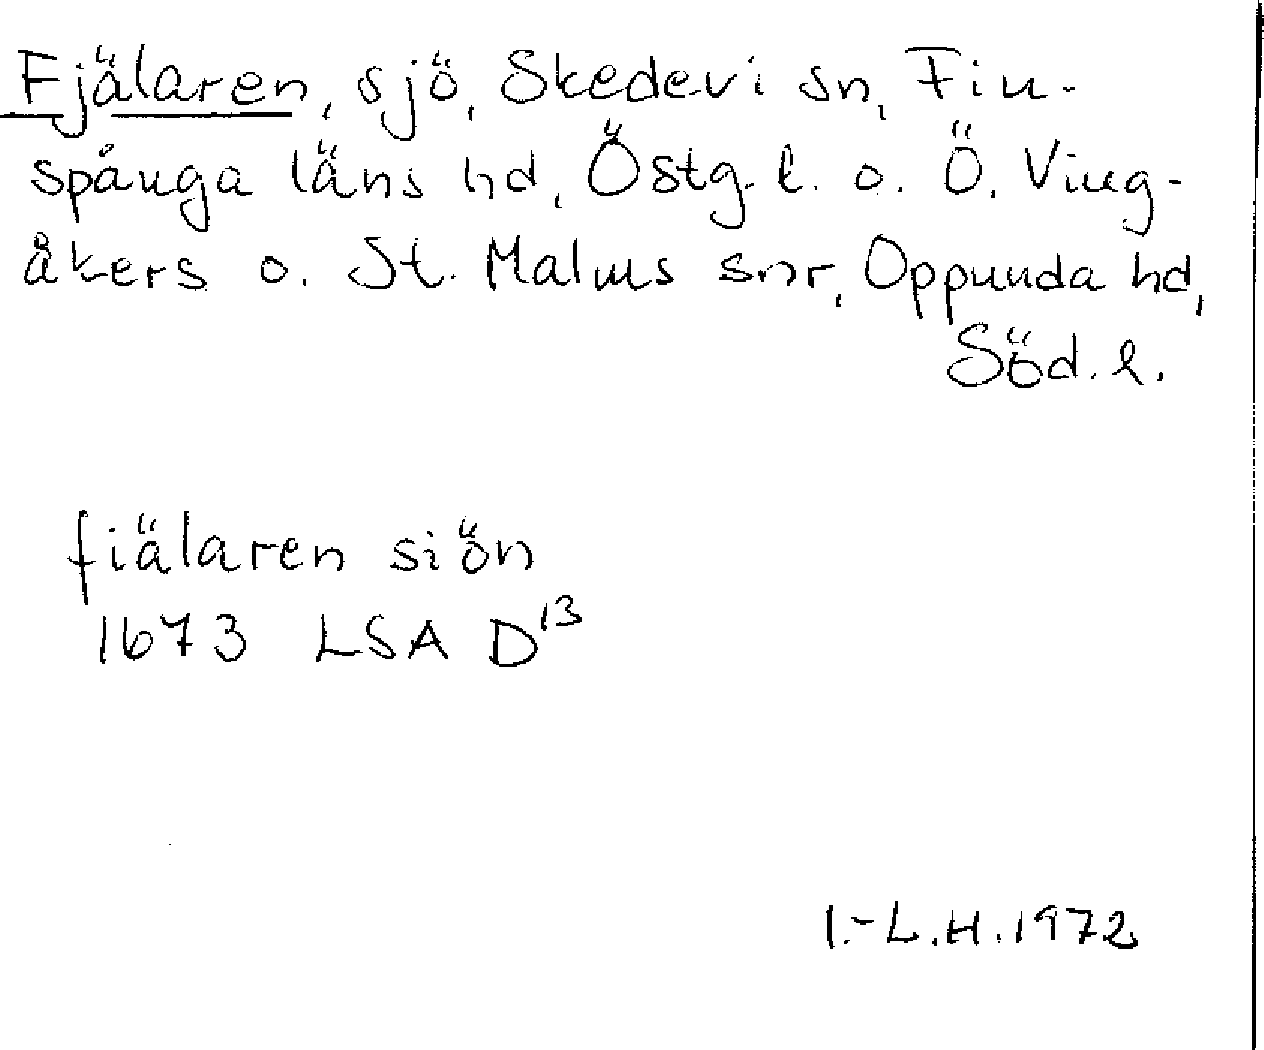 Fjälaren, sjö, Skedevi sn, Fin-
spånga läns hd, Östg. l. o. Ö. Ving-
åkers o. St. Malms snr, Oppunda hd,
Söd. l.
fiälaren siön
1673 LSA D¹³
I.-L.H. 1972